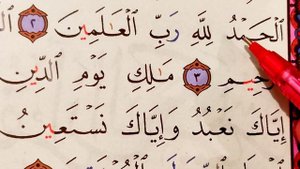 الْحَمْدُ لِلَّهِ رَبِّ الْعَٰلَمِينَ ٢
مَٰلِكِ يَوْمِ الدِّينِ ٣
إِيَّاكَ نَعْبُدُ وَإِيَّاكَ نَسْتَعِينُ